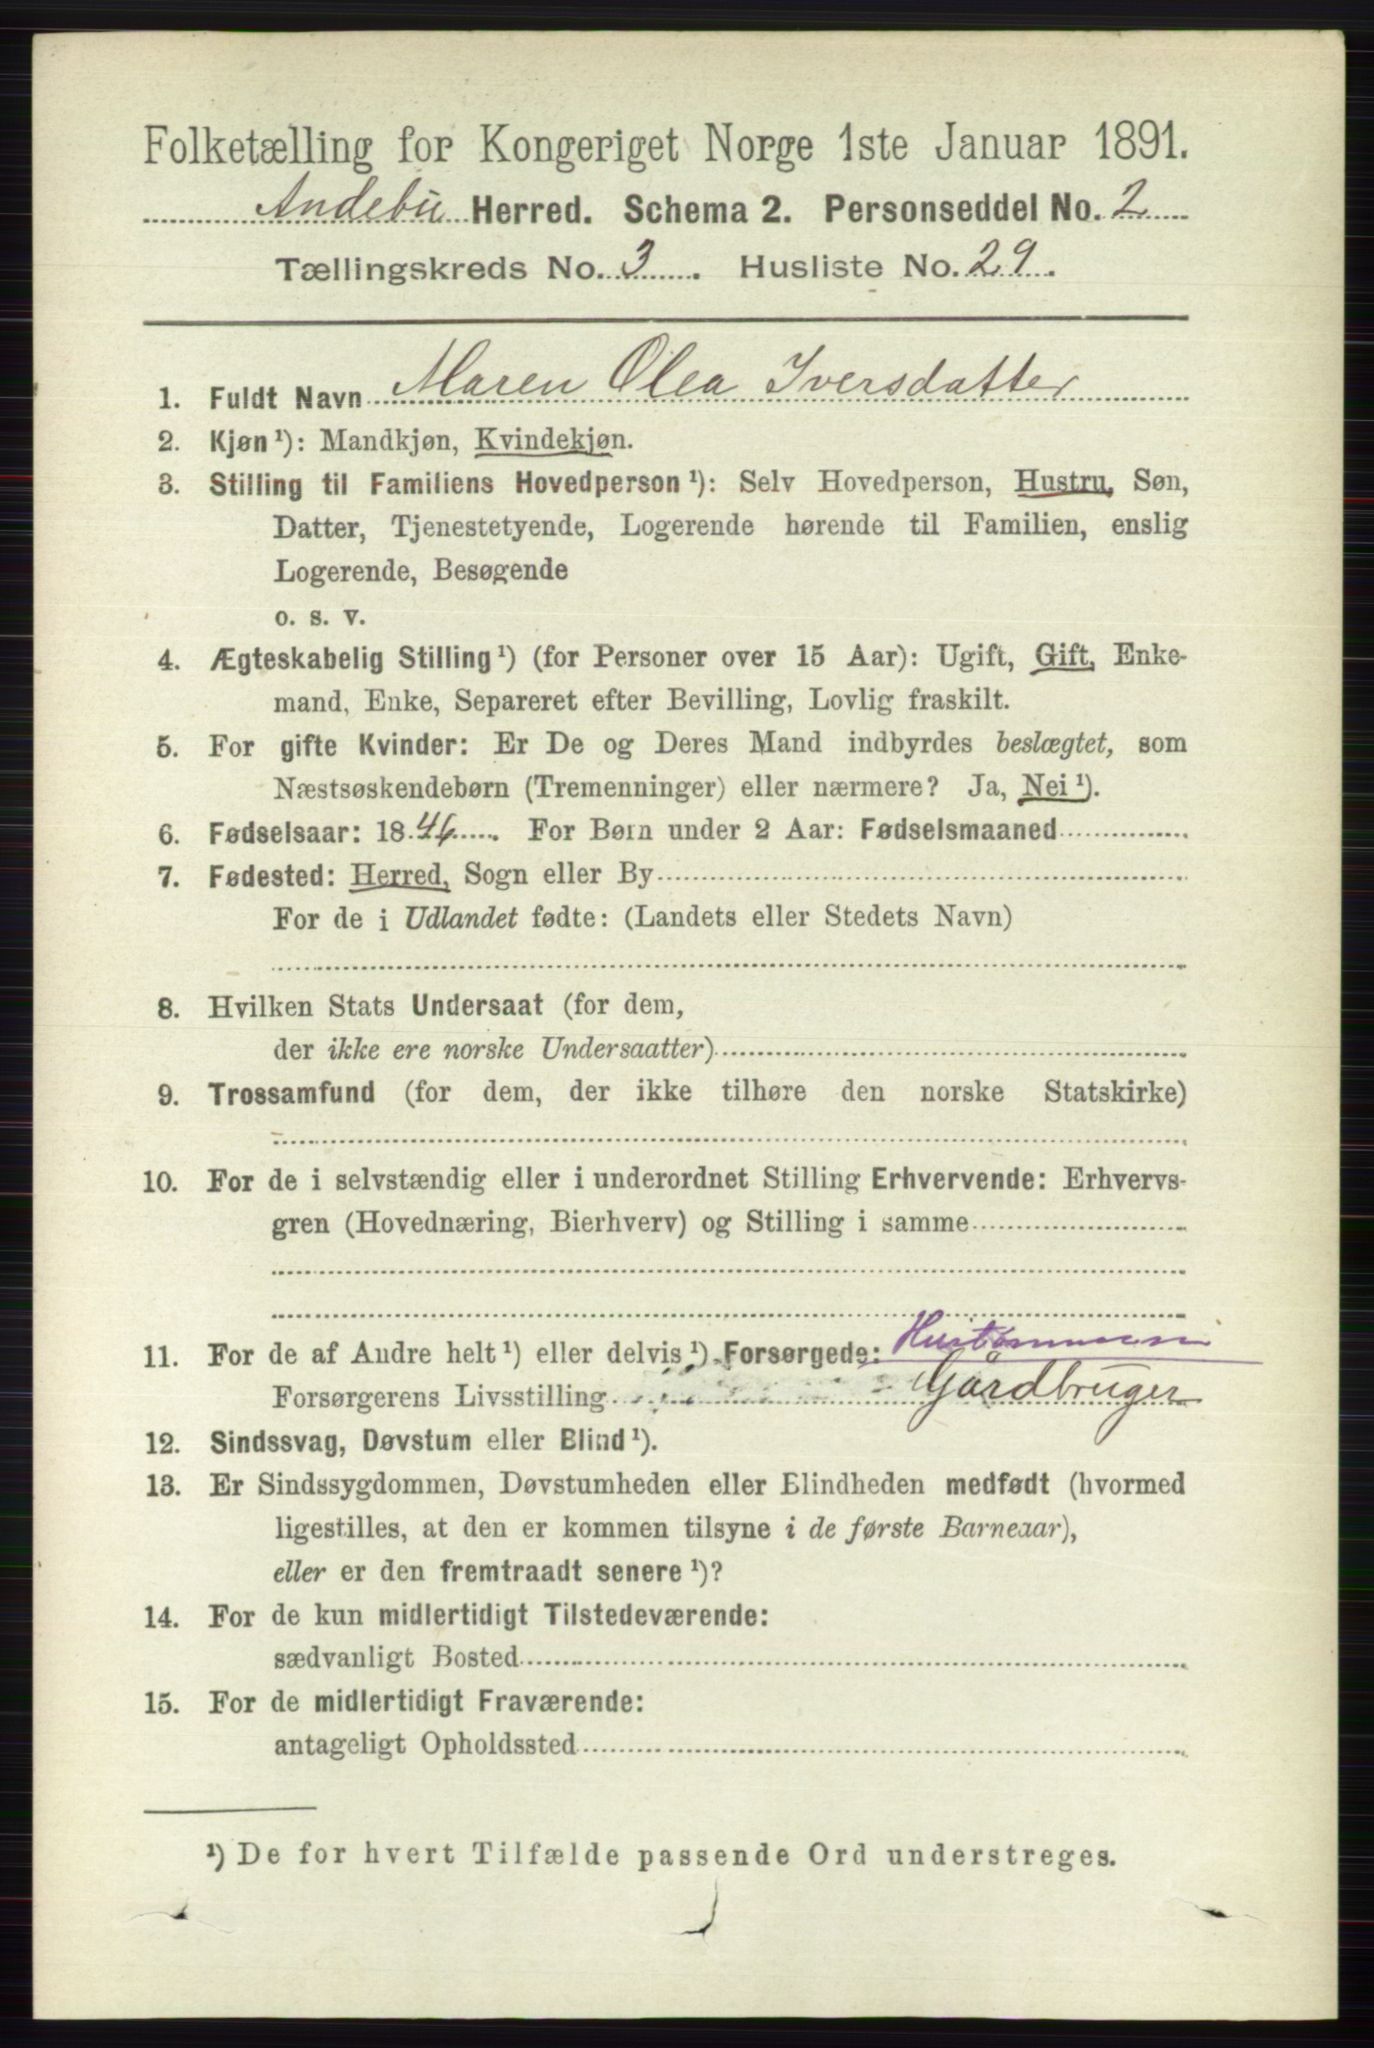 Folketælling for Kongeriget Norge 1ste Januar 1891.
Andebu Herred. Schema 2. Personseddel No. 2
Tællingskreds No. 3. Husliste No. 29.
1. Fuldt Navn Maren Olea Iversdatter
2. Kjøn¹): Mandkjøn, Kvindekjøn.
3. Stilling til Familiens Hovedperson¹): Selv Hovedperson, Hustru, Søn,
Datter, Tjenestetyende, Logerende hørende til Familien, enslig
Logerende, Besøgende
o. s. v.
4. Ægteskabelig Stilling¹) (for Personer over 15 Aar): Ugift, Gift, Enke-
mand, Enke, Separeret efter Bevilling, Lovlig fraskilt.
5. For gifte Kvinder: Er De og Deres Mand indbyrdes beslægtet, som
Næstsøskendebørn (Tremenninger) eller nærmere? Ja, Nei¹).
6. Fødselsaar: 1846. For Børn under 2 Aar: Fødselsmaaned
7. Fødested: Herred, Sogn eller By
For de i Udlandet fødte: (Landets eller Stedets Navn)
8. Hvilken Stats Undersaat (for dem,
der ikke ere norske Undersaatter)
9. Trossamfund (for dem, der ikke tilhøre den norske Statskirke)
10. For de i selvstændig eller i underordnet Stilling Erhvervende: Erhvervs-
gren (Hovednæring, Bierhverv) og Stilling i samme
11. For de af Andre helt¹) eller delvis¹) Forsørgede:
Forsørgerens Livsstilling Gårdbruger
12. Sindssvag, Døvstum eller Blind¹).
13. Er Sindssygdommen, Døvstumheden eller Blindheden medfødt (hvormed
ligestilles, at den er kommen tilsyne i de første Barneaar),
eller er den fremtraadt senere¹)?
14. For de kun midlertidigt Tilstedeværende:
sædvanligt Bosted
15. For de midlertidigt Fraværende:
antageligt Opholdssted
¹) De for hvert Tilfælde passende Ord understreges.